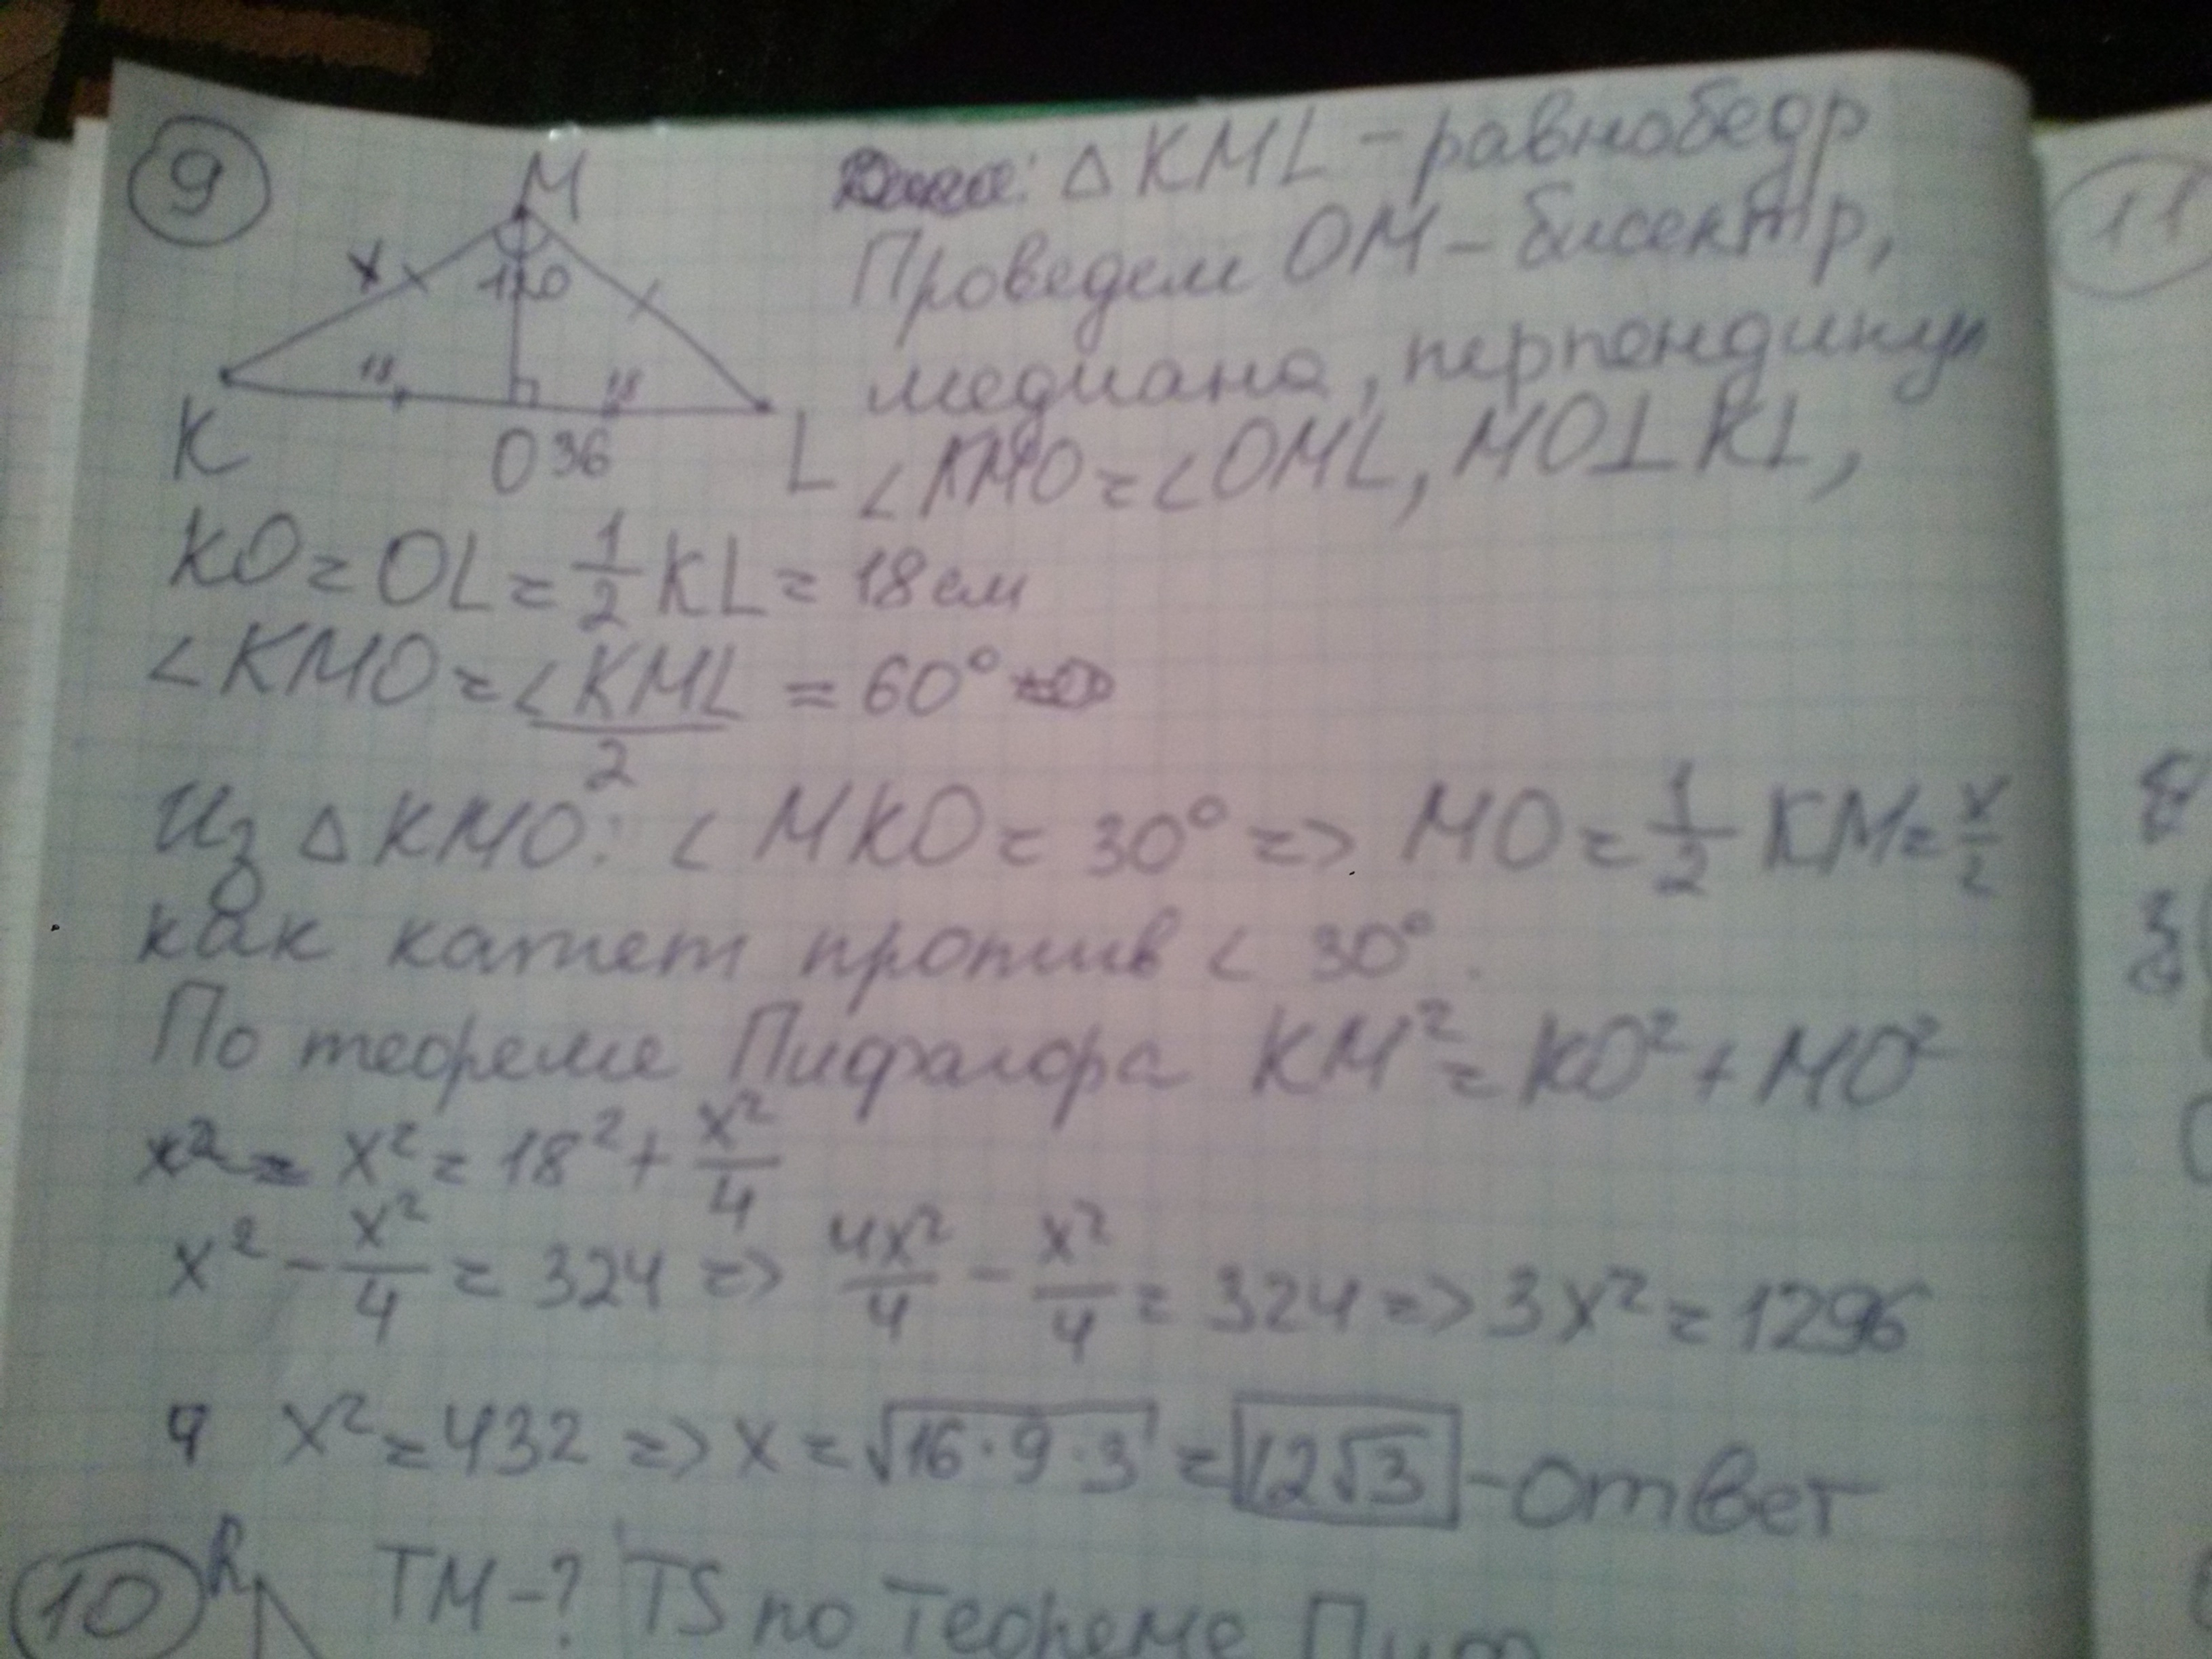 9
M
x
120
18
18
K
O 36
L
Дано: Δ KML - равнобедр
Проведем OM - бисектр,
медиана, перпендикул
∠KMO = ∠OML, MO⊥KL,
KO = OL = 1/2 KL = 18 см
∠KMO = ∠KML/2 = 60°
Из Δ KMO: ∠MKO = 30° => MO = 1/2 KM = x/2
как катет против ∠ 30°.
По теореме Пифагора KM² = KO² + MO²
x² = x² = 18² + x²/4
x² - x²/4 = 324 => 4x²/4 - x²/4 = 324 => 3x² = 1296
x² = 432 => x = √16·9·3 = 12√3 - ответ
10
R
TM - ? TS по Теореме Пиф
11